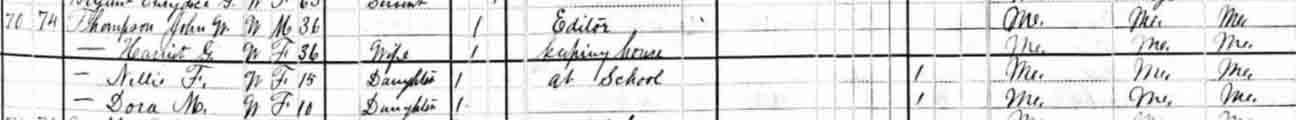 F 63 Servant
70 74 Thompson John W. W M 36 1 Editor Me. Me. Me
— Harriet G. W F 36 Wife 1 keeping house Me. Me. Me.
— Nellie F. W F 15 Daughter 1 at School 1 Me. Me. Me.
— Dora M. W F 10 Daughter 1 1 Me. Me. Me.